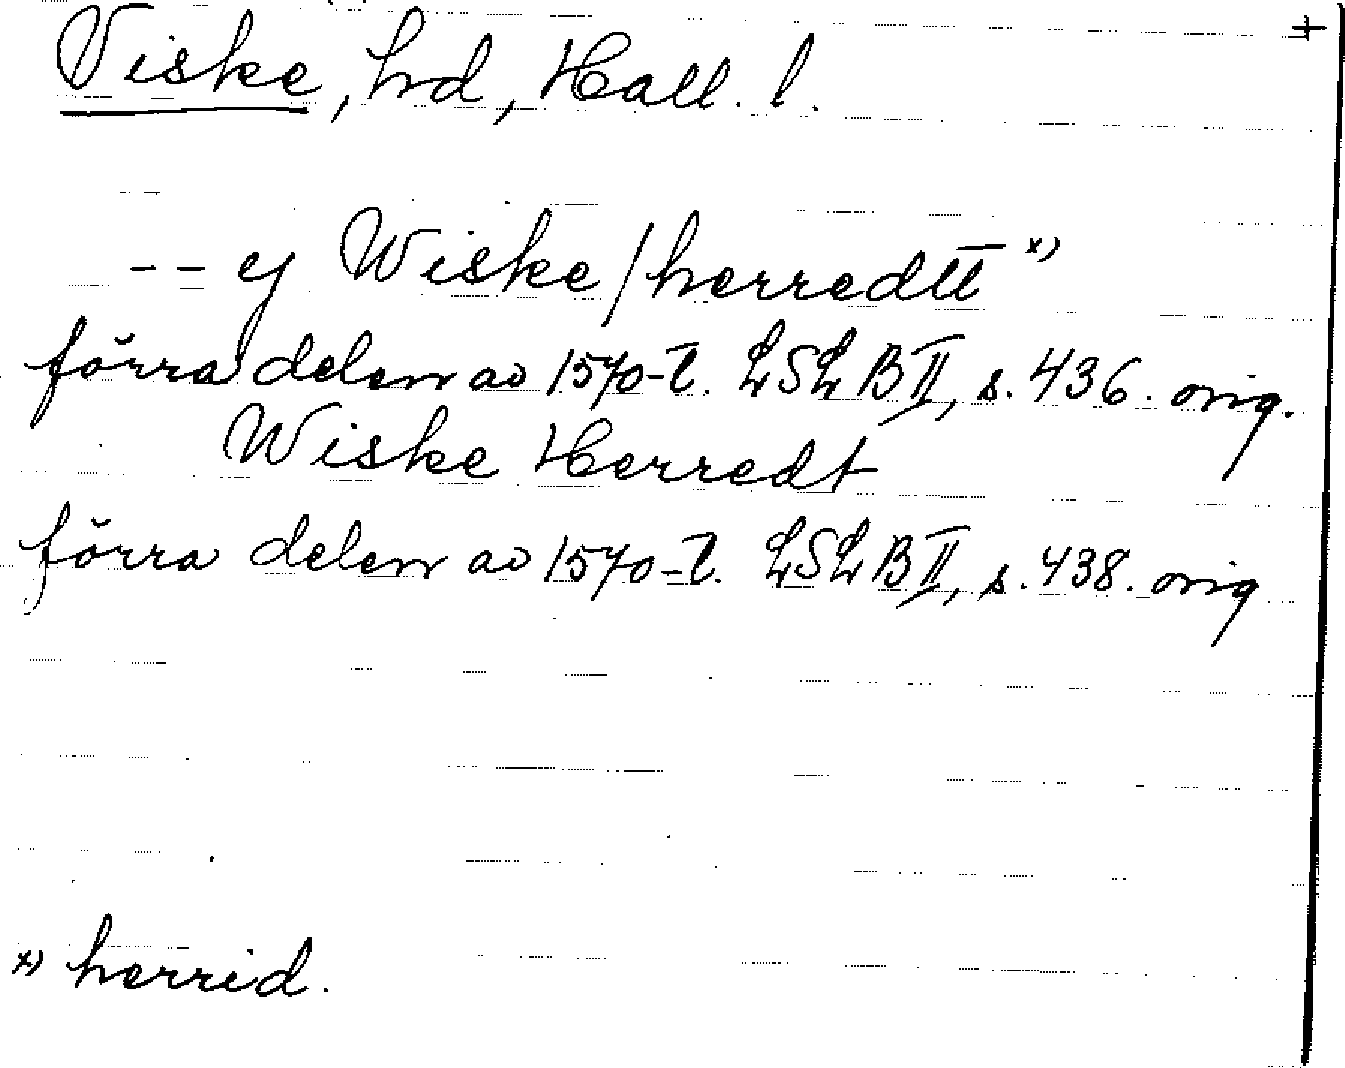 Viske, hd, Hall. l. +
-- ej Wiske/herredtt x)
förra delen av 1570-t. LSLB II, s. 436. orig.
Wiske Herredt
förra delen av 1570-t. LSLB II, s. 438. orig
x) herrid.